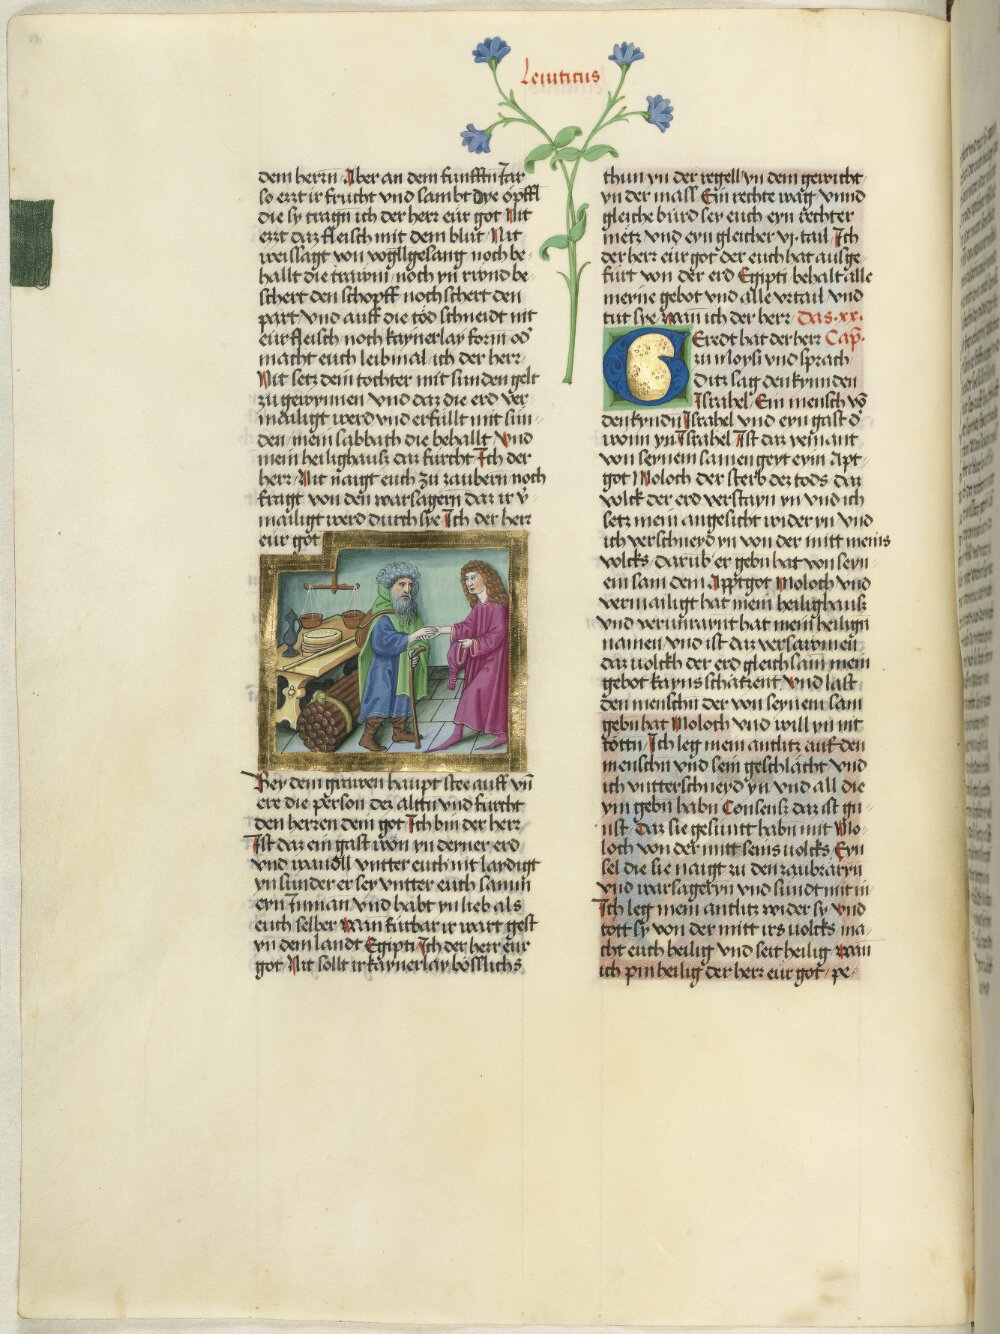 Leuiticus
dem herrn Aber an dem funfften Jar
so ezzt ir frucht vnd sambt dye opffl
die sy tragn ich der herr eur got Nit
ezzt daz fleisch mit dem blut Nit
weissagt von vogllgesang noch be-
hallt die trawm noch yn rwnd be
schert den schopff noch schert den
part vnd auff die tod schneidt nit
eur fleisch noch kaynerlay form od
macht euch leibmal ich der herr
Nit setz dein tochter mit sunden gelt
zu gewynnen vnd daz die erd ver
mailigt werd vnd erfullt mit sun
den mein sabbath die behallt Vnd
mein heilighaus daz furcht Ich der
herr Nit naigt euch zu zaubern noch
fragt von den warsagern daz ir v
mailigt werd durch sye Ich der herr
eur got
Bey dem grawen haupt stee auff vn
ere die person des alttn vnd furcht
den herren dein got Ich bin der herr
Ist daz ein gast won yn dewer erd
vnd wandll vntter euch nit laydigt
yn sunder er sey vntter euch samm
eyn Jnman vnd habt yn lieb als
euch selber Wan furbar ir wart gest
yn dem landt Egipti Ich der herr eur
got Nit sollt ir kaynerlay bosslichs
thun yn der regell yn dem gewicht
yn der mass Ein rechte wag vnnd
gleiche burd sey euch eyn rechter
metz vnd eyn gleicher vj tail Ich
der herr eur got der euch hat ausge-
furt von der erd Egipti behalt alle
meyne gebot vnd alle vrtail vnd
tut sye wan ich der herr Das xx.
Geredt hat der herr Cap.
zu moysi vnd sprach
ditz sag den kynnden
Israhel Ein mensch vo
den kyndn Israhel vnd eyn gast d
wonn yn Israhel Ist daz yemant
von seynem samen geyt eym Apt
got Moloch der sterb des tods daz
volck der erd verstayn yn vnd ich
setz mein angesicht wider yn vnd
ich verschneyd yn von der mitt meins
volcks darub er gebn hat von seyn
em sam dem Apptgot Moloch vnd
vermailigt hat mein heilighaus
vnd verunraynt hat mein heilign
namen vnd ist daz versawmen
daz uolckh der erd gleich sam mein
gebot kayns schatzent vnd last
den menschn der von seyn em sam
gebn hat Moloch vnd will yn nit
tottn Ich leg mein antlitz auf den
menschn vnd sein geschlacht vnd
ich vntterschneyd yn vnd all die
ym gebn habn Consens daz ist gu
nst Daz sie gesuntt habn mit Mo-
loch von der mitt seins uolcks Eyn
sel die sie naigt zu den zaubraryn
vnd warsageryn vnd sundt mit in
Ich leg mein antlitz wider sy vnd
tott sy von der mitt irs uolcks ma-
cht euch heilig vnd seit heilig wan
ich pin heilig der herr eur got pe-